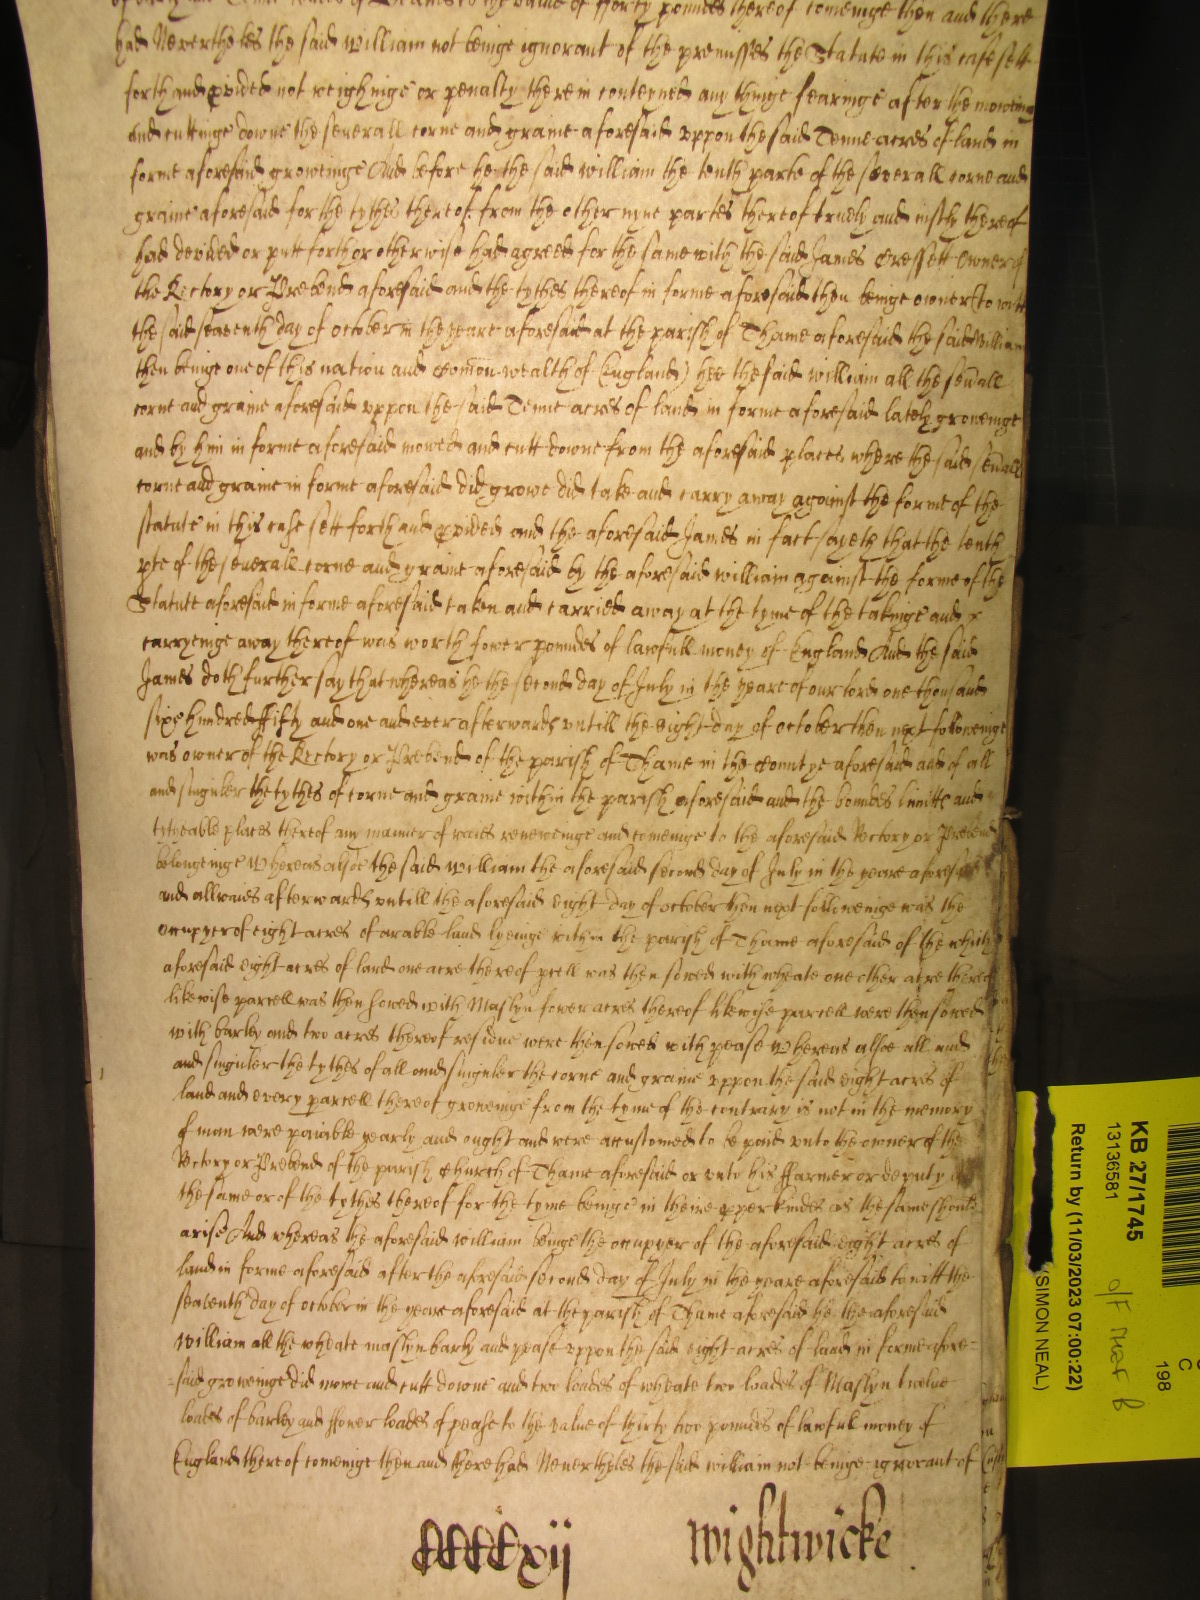 to the value of fforty poundes thereof comeinge then and there
had Neverthe les the said William not beinge ignorant of the premisses the Statute in this case sett
forth and pvided not weighinge or penalty therein conteyned any thinge fearinge after the moweing
and cuttinge downe the severall corne and graine aforesaid uppon the said Tenne acres of land in
forme aforesaid groweinge And before he the said william the tenth parte of the severall corne and
graine aforesaid for the tythes thereof from the other nyne partes thereof truely and iustly thereof
had devided or putt forth or otherwise had agreed for the same with the said James Cressett Owner of
the Rectory or Prebend aforesaid and the tythes thereof in forme aforesaid then beinge owner (to witt
the said seaventh day of october in the yeare aforesaid at the parish of Thame aforesaid the said William
then beinge one of this nation and Comon-wealth of England) hee the said william all the sevall
corne and graine aforesaid uppon the said Tenne acres of land in forme aforesaid lately groweinge
and by him in forme aforesaid mowed and cutt downe from the aforesaid places where the said sevall
corne and graine in forme aforesaid did growe did take and carry away against the forme of the
statute in this case sett forth and pvided and the aforesaid James in fact sayeth that the tenth
pte of the severall corne and graine aforesaid by the aforesaid william against the forme of the
Statute aforesaid in forme aforesaid taken and carried away at the tyme of the takinge and
carryeinge away thereof was worth fower poundes of lawfull money of England And the said
James doth further say that whereas he the second day of July in the yeare of our lord one thousand
sixe hundred ffifty and one and ever afterwards untill the eight day of october then next followeinge
was owner of the Rectory or Prebend of the parish of Thame in the Countye aforesaid and of all
and singuler the tythes of corne and graine within the parish aforesaid and the boundes limitts and
titheable places thereof any manner of waies reneweinge and comeinge to the aforesaid Rectory or Prebend
belongeinge Whereas alsoe the said william the aforesaid second day of July in the yeare aforesaid
and allwaies afterwards untill the aforesaid eight day of october then next followeinge was the
occupyer of eight acres of arable land lyeinge within the parish of Thame aforesaid of the which
aforesaid eight acres of land one acre thereof pcell was then sowed with wheate one other acre thereof
likewise parcell was then sowed with Maslyn fower acres thereof likewise parcell were then sowed
with barley and two acres thereof residue were then sowed with pease Whereas alsoe all and
and singuler the tythes of all and singuler the corne and graine uppon the said eight acres of
land and every parcell thereof groweinge from the tyme of the contrary is not in the memory
of man were paiable yearly and ought and were accustomed to be paid unto the owner of the
Rectory or Prebend of the parish Church of Thame aforesaid or unto his ffarmer or deputy of
the same or of the tythes thereof for the tyme beinge in theire pper kindes as the same should
arise And whereas the aforesaid william beinge the occupyer of the aforesaid eight acres of
land in forme aforesaid after the aforesaid second day of July in the yeare aforesaid to witt the
seaventh day of october in the yeare aforesaid at the parish of Thame aforesaid he the aforesaid
William all the wheate maslyn barly and pease uppon the said eight acres of land in forme afore=
=said groweinge did mowe and cutt downe and two loades of wheate two loades of Maslyn twelve
loades of barley and ffower loades of pease to the value of thirty two poundes of lawfull money of
England thereof comeinge then and there had Neverthelес the said william not beinge ignorant of
CCCCxij wightwicke
KB 27/1745
13136581
Return by (11/03/2023 07:00:22)
(SIMON NEAL)
C
198